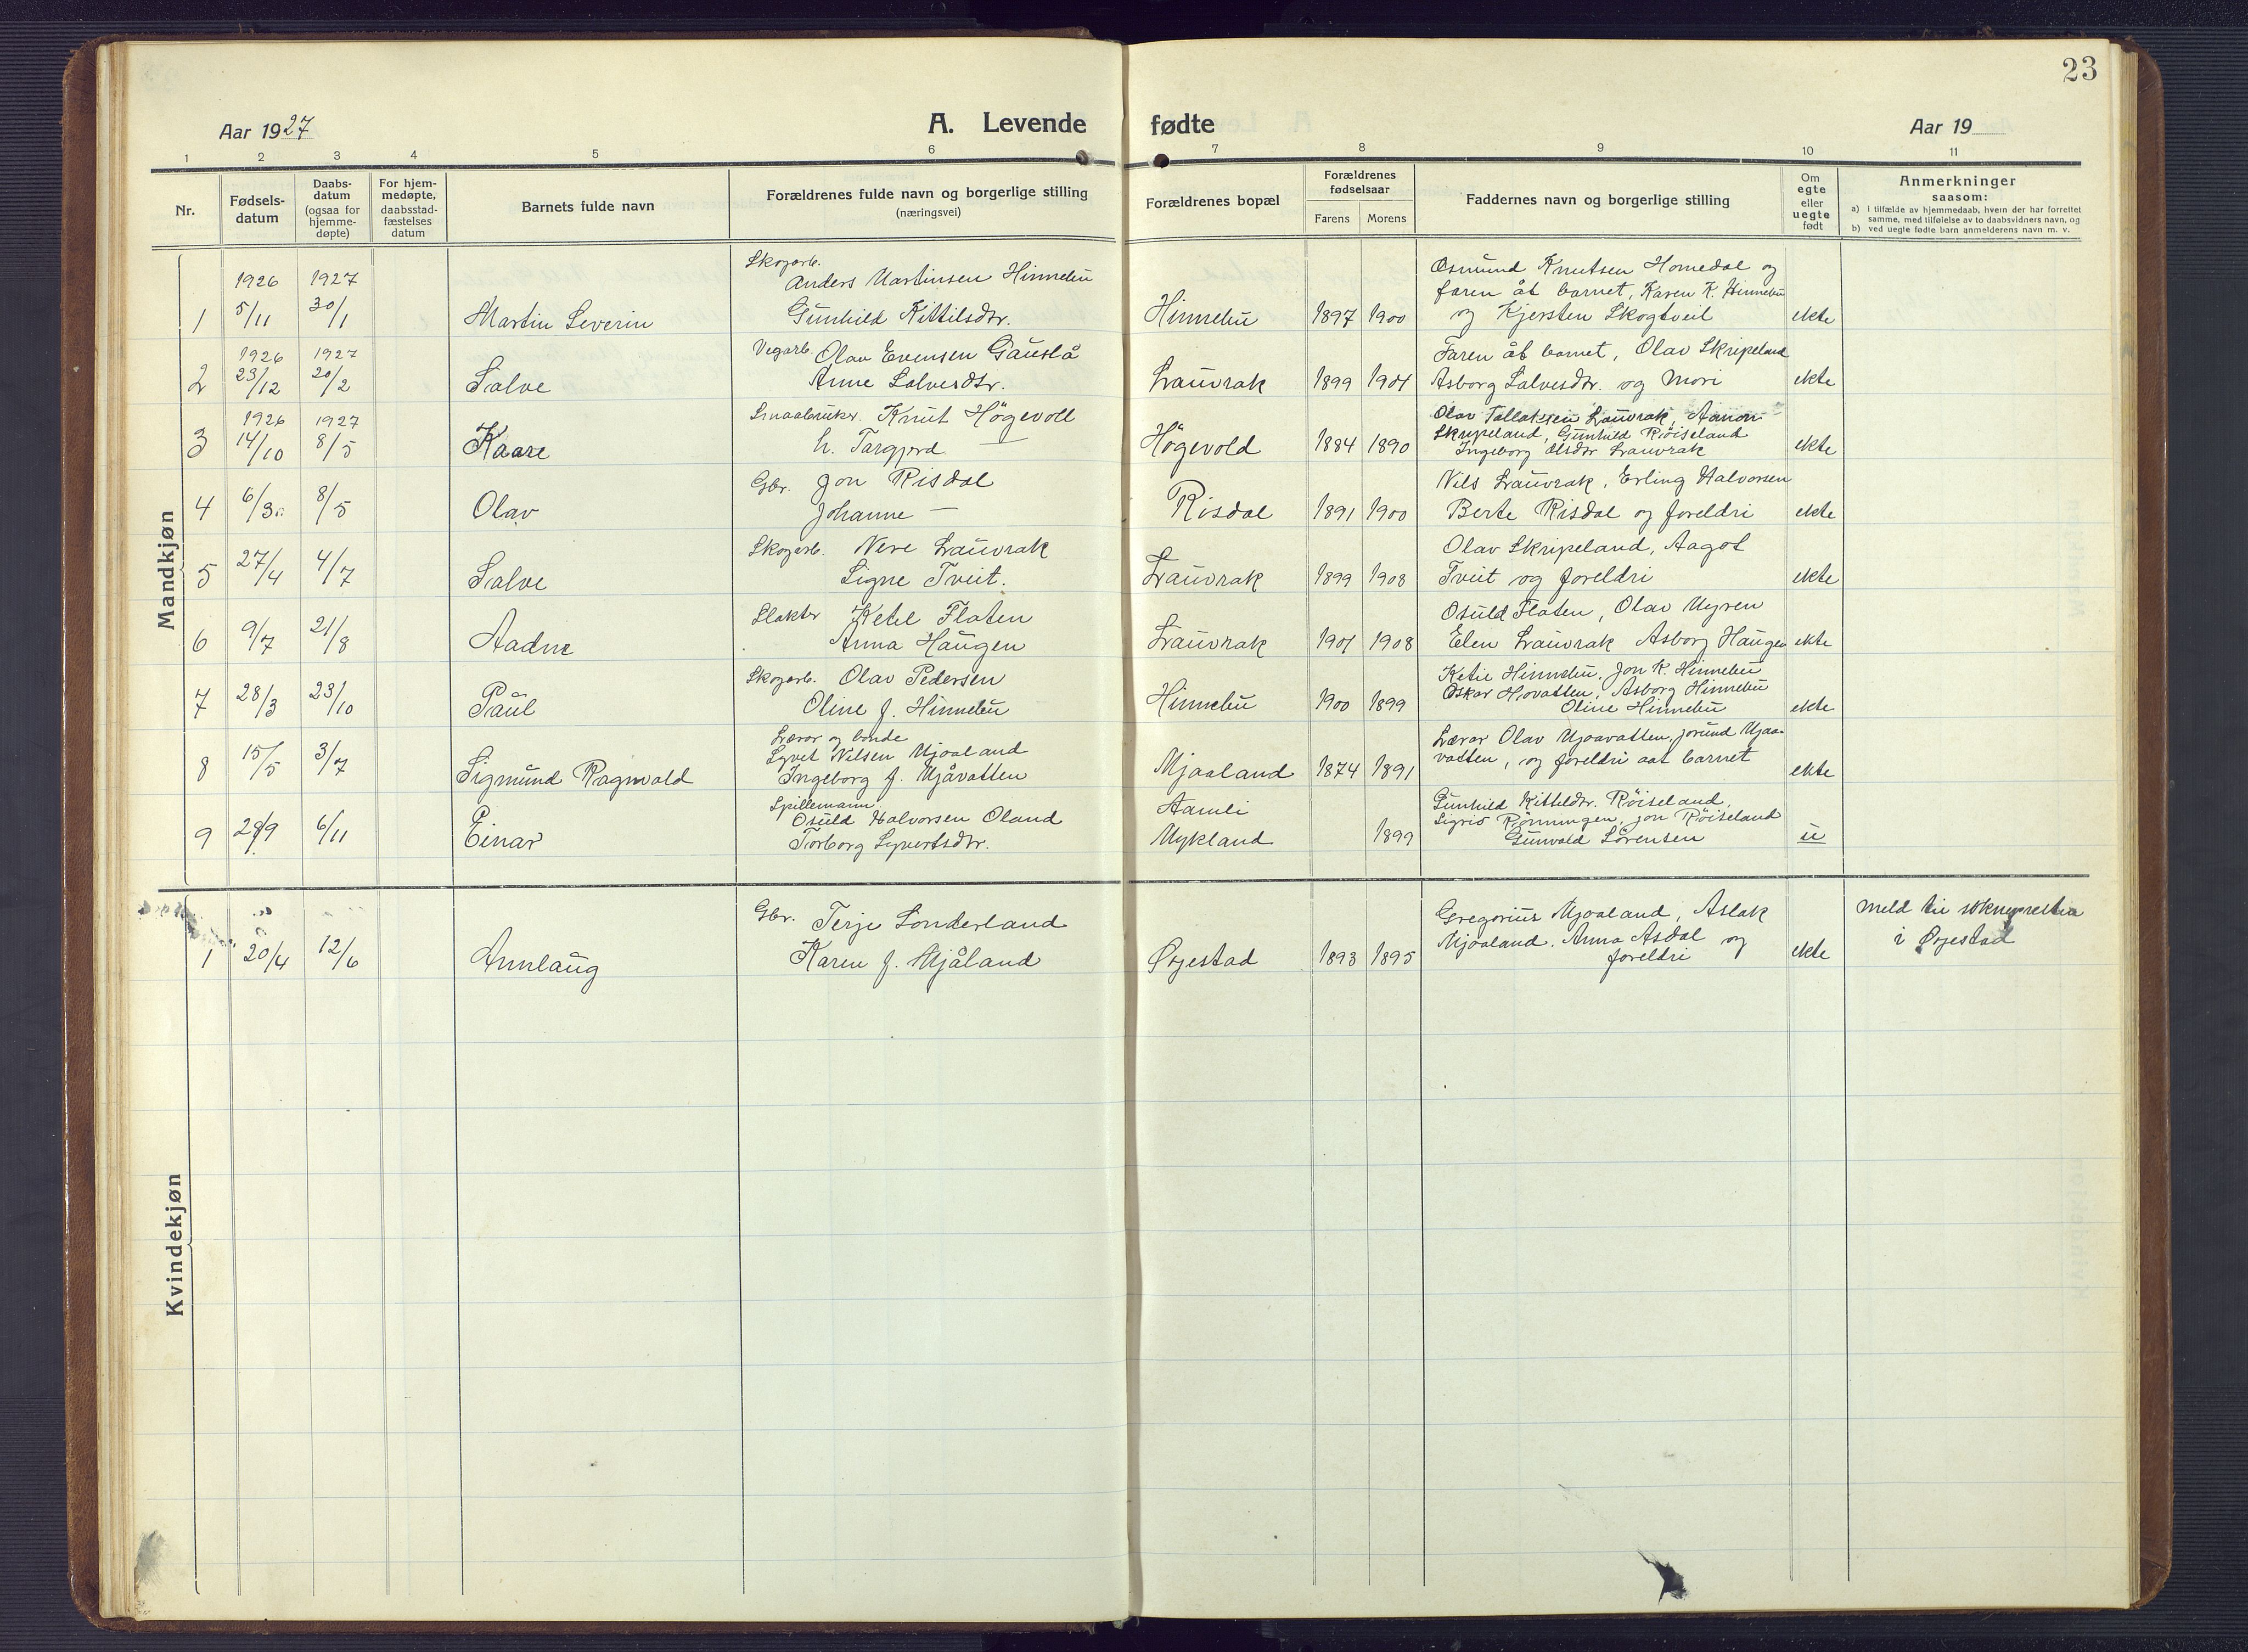 23
Aar 1927
A. Levende fødte
Aar 19
1 2 3 4 5 6 7 8 9 10 11
Nr.
Fødsels-
datum
Daabs-
datum
(ogsaa for
hjemme-
døpte)
For hjem-
medøpte,
daabsstad-
fæstelses
datum
Barnets fulde navn
Forældrenes fulde navn og borgerlige stilling
(næringsvei)
Forældrenes bopæl
Forældrenes
fødselsaar
Farens Morens
Faddernes navn og borgerlige stilling
Om
egte
eller
uegte
født
Anmerkninger
saasom:
a) i tilfælde av hjemmedaab, hvem der har forrettet
samme, med tilføielse av to daabsvidners navn, og
b) ved uegte fødte barn anmelderens navn m. v.
Mandkjøn
1926 1927
1 5/11 30/1 Martin Severin
Skogarb.
Anders Martinsen Hinnebu
Gunhild Kittilsdtr.
Hinnebu 1897 1900
Osmund Knutsen Homedal og
faren åt barnet, Karen K. Hinnebu
og Kjersten Skogtveit
ekte
1926 1927
2 23/12 20/2 Salve
Vegarb. Olav Evensen Gauslå
Anne Salvesdtr.
Lauvrak 1899 1901
Faren åt barnet, Olav Skripeland
Asborg Salvesdtr. og Mori
ekte
1926 1927
3 14/10 8/5 Kaare
Smaabruker. Knut Högevoll
h. Targjerd —
Högevold 1884 1890
Olav Tallaksen Lauvrak, Aanon
Skripeland, Gunhild Röiseland
Ingeborg Olsdtr Lauvrak
ekte
4 6/3 8/5 Olav
Gbr. Jon Risdal
Johanne —
Risdal 1891 1900
Nils Lauvrak, Erling Halvorsen
Berte Risdal og foreldri
ekte
5 27/4 4/7 Salve
Skogarb. Nere Lauvrak
Signe Tveit.
Lauvrak 1899 1908
Olav Skripeland, Aagot
Tveit og foreldri
ekte
6 9/7 21/8 Aadne
Slakter Ketel Flaten
Anna Haugen
Lauvrak 1901 1908
Osuld Flaten, Olav Myren
Elen Lauvrak Asborg Haugen
ekte
7 28/3 23/10 Paul
Skogarb. Olav Pedersen
Oline J. Hinnebu
Hinnebu 1900 1899
Ketil Hinnebu, Jon K. Hinnebu
Oskar Hovatten, Asborg Hinnebu
Oline Hinnebu
ekte
8 15/5 3/7 Sigmund Ragnvald
Lærar og bonde
Syvet Nilsen Mjaaland
Ingeborg J. Mjåvatten
Mjaaland 1874 1891
Lærar Olav Mjaavatten, Jorund Mjaa-
vatten, og foreldri aat barnet
ekte
9 29/9 6/11 Einar
Spillemann
Osuld Halvorsen Oland
Torborg Syvertsdtr.
Aamli
Mykland
1899
Gunhild Kitteldtr. Röiseland,
Sigrid Rönningen, Jon Röiseland
Gunvald Sörensen
u
Kvindekjøn
1 20/4 12/6 Annlaug
Gbr. Terje Sonderland
Karen J. Mjåland
Øyestad 1893 1895
Gregorius Mjaaland, Aslak
Mjaaland. Anna Asdal og
foreldri
ekte
Meld til soknepresten
i Øyestad